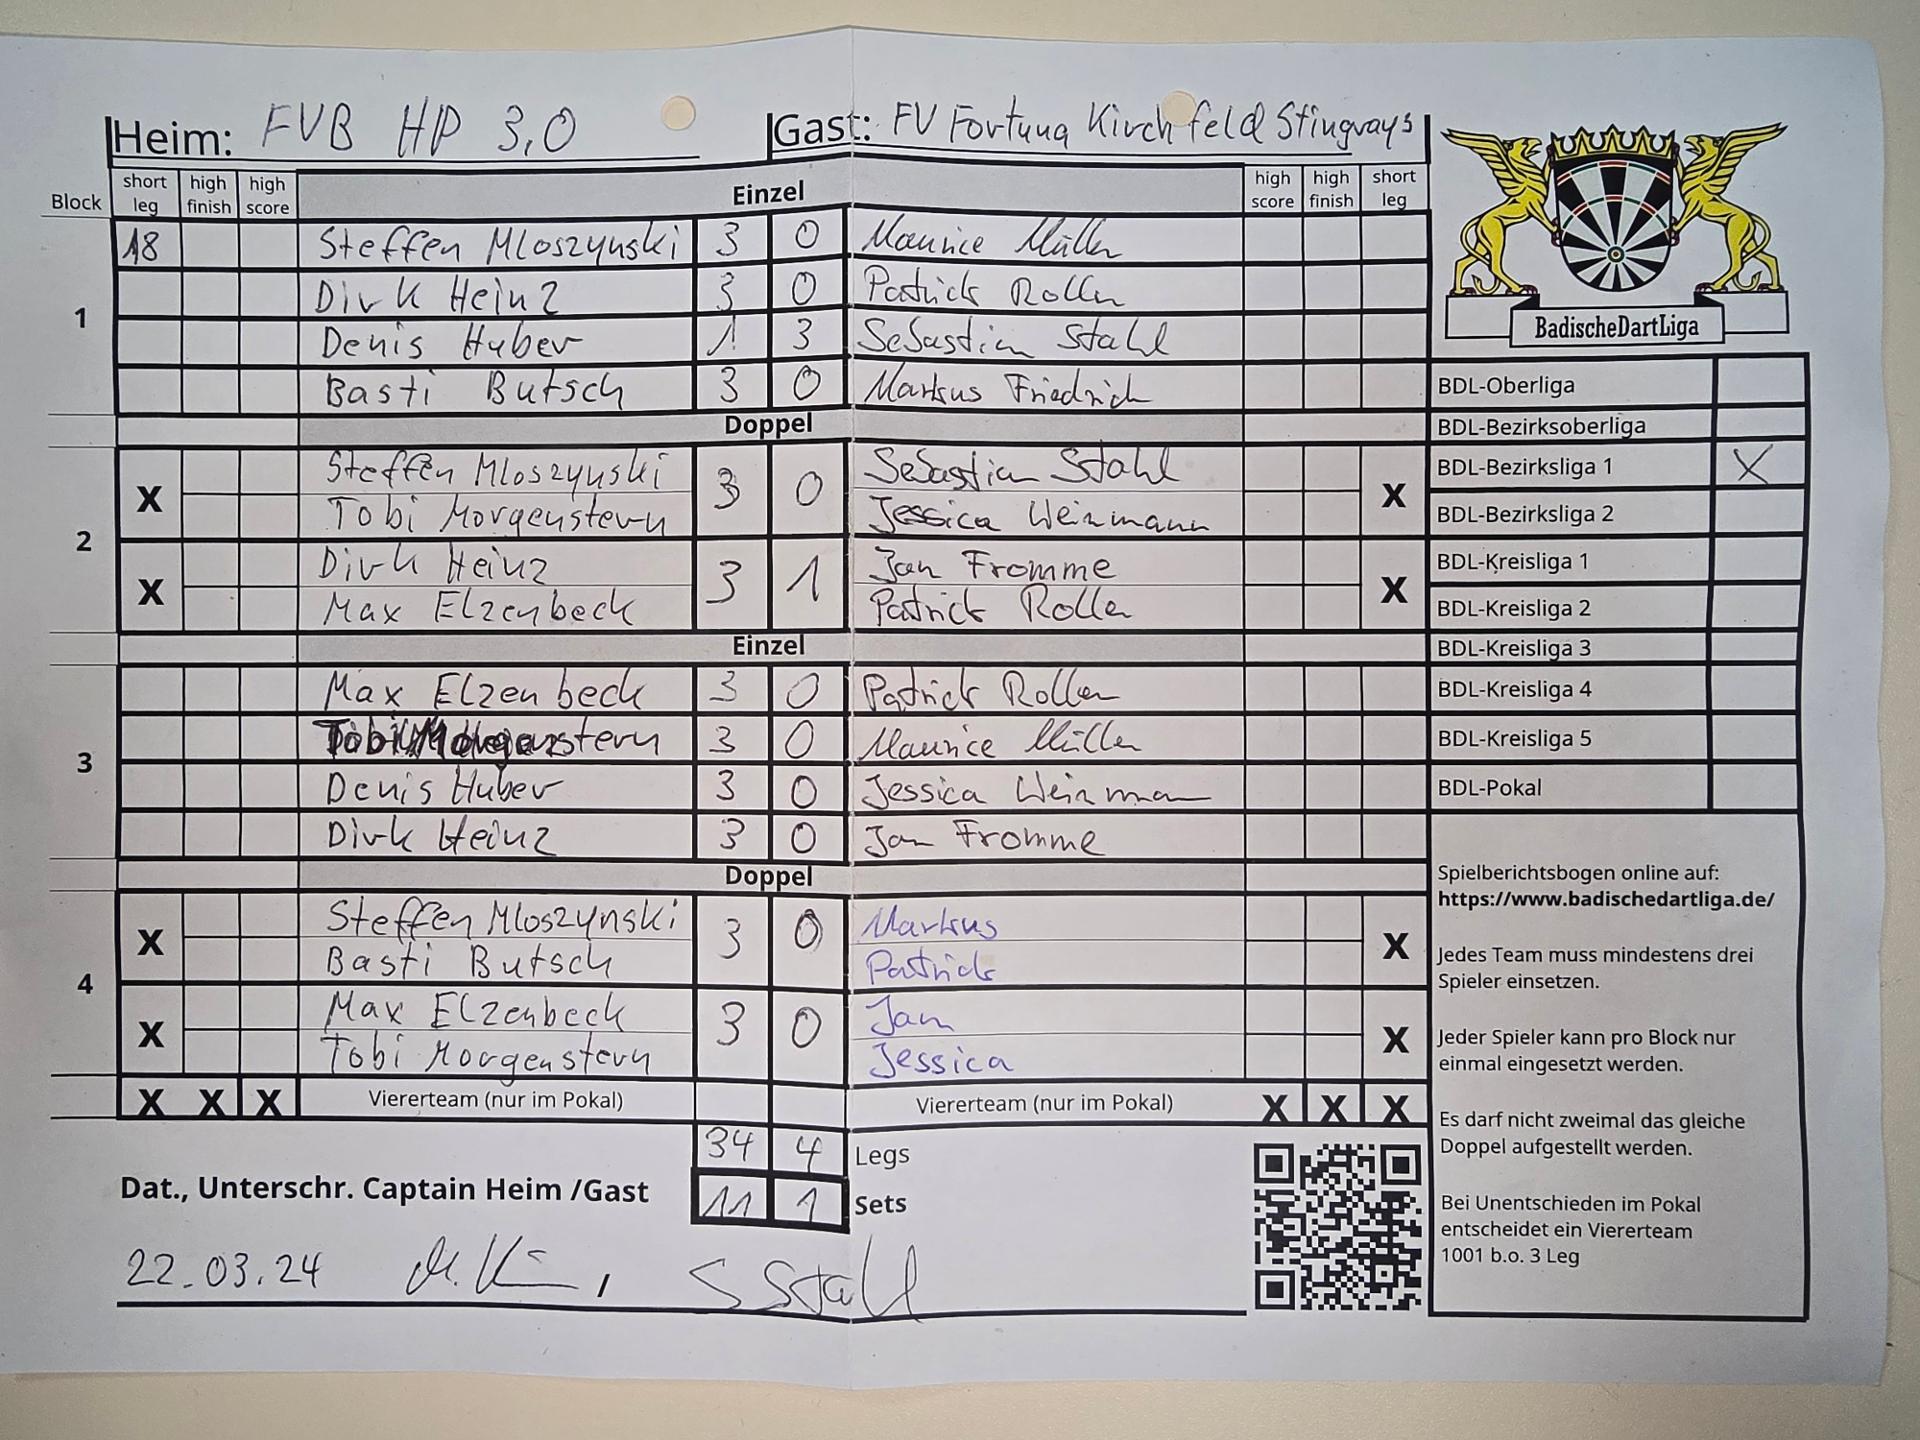 Heim: FVB HP 3,0 Gast: FV Fortuna Kirchfeld Stingrays
Block short leg high finish high score Einzel high score high finish short leg
1
18 Steffen Mloszynski 3 0 Maurice Müller
Dirk Heinz 3 0 Patrick Roller
Denis Huber 1 3 Sebastian Stahl
Basti Butsch 3 0 Markus Friedrich
Doppel
2
X Steffen Mloszynski 3 0 Sebastian Stahl X
Tobi Morgenstern Jessica Weinmann
X Dirk Heinz 3 1 Jan Fromme X
Max Elzenbeck Patrick Roller
Einzel
3
Max Elzenbeck 3 0 Patrick Roller
Tobi Morgenstern 3 0 Maurice Müller
Denis Huber 3 0 Jessica Weinmann
Dirk Heinz 3 0 Jan Fromme
Doppel
4
X Steffen Mloszynski 3 0 Markus X
Basti Butsch Patrick
X Max Elzenbeck 3 0 Jan X
Tobi Morgenstern Jessica
X X X Viererteam (nur im Pokal) Viererteam (nur im Pokal) X X X
34 4 Legs
11 1 Sets
Dat., Unterschr. Captain Heim /Gast
22.03.24 S Stahl
BadischeDartLiga
BDL-Oberliga
BDL-Bezirksoberliga
BDL-Bezirksliga 1 X
BDL-Bezirksliga 2
BDL-Kreisliga 1
BDL-Kreisliga 2
BDL-Kreisliga 3
BDL-Kreisliga 4
BDL-Kreisliga 5
BDL-Pokal
Spielberichtsbogen online auf:
https://www.badischedartliga.de/
Jedes Team muss mindestens drei
Spieler einsetzen.
Jeder Spieler kann pro Block nur
einmal eingesetzt werden.
Es darf nicht zweimal das gleiche
Doppel aufgestellt werden.
Bei Unentschieden im Pokal
entscheidet ein Viererteam
1001 b.o. 3 Leg